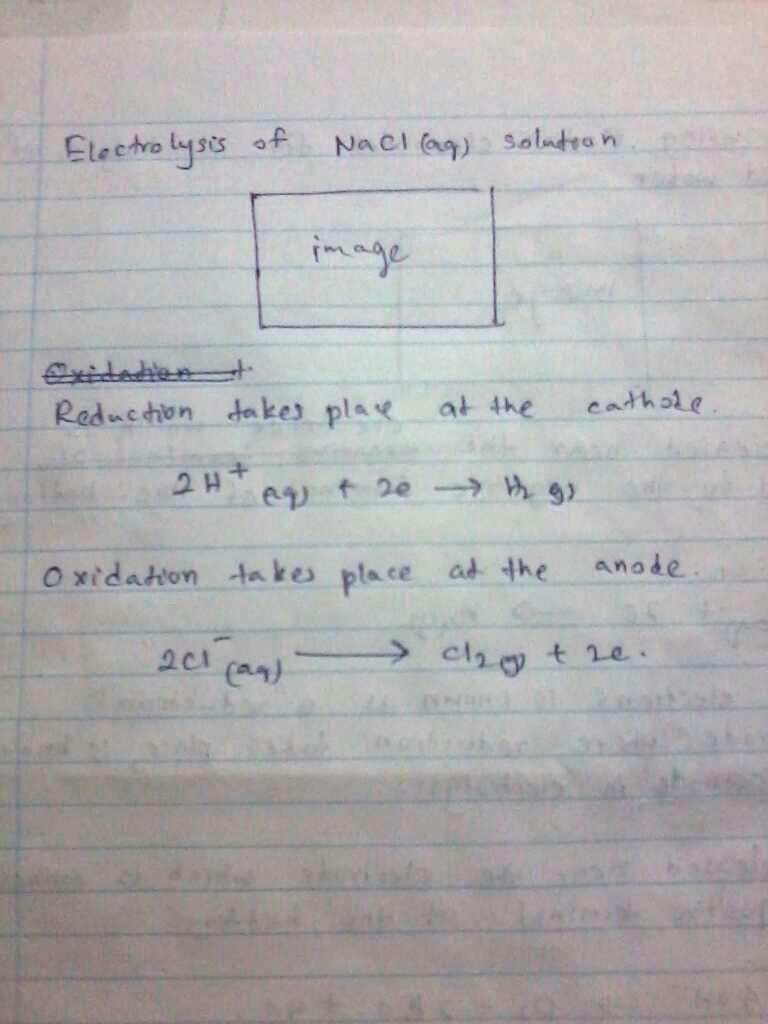 Electrolysis of NaCl (aq) solution.
image
Oxidation t
Reduction takes place at the cathode.
2H⁺ (aq) + 2e → H₂ (g)
Oxidation takes place at the anode.
2Cl⁻ (aq) → Cl₂ (g) + 2e.